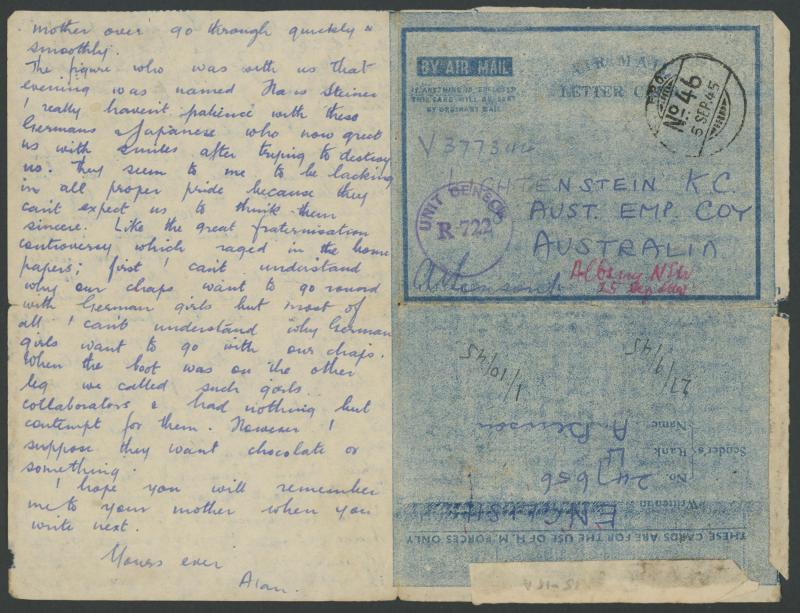 mother over go through quickly &
smoothly.
The figure who was with us that
evening was named Hans Steiner
I really haven't patience with these
Germans & Japanese who now greet
us with smiles after trying to destroy
us. They seem to me to be lacking
in all proper pride because they
can't expect us to think them
sincere. Like the great fraternisation
controversy which raged in the home
papers; first I can't understand
why our chaps want to go round
with German girls but most of
all I can't understand why German
girls want to go with our chaps.
When the boot was on the other
leg we called such girls
collaborators & had nothing but
contempt for them. However I
suppose they want chocolate or
something.
I hope you will remember
me to your mother when you
write next.
Yours ever
Alan.
BY AIR MAIL
AIR MAIL
LETTER CARD
IF ANYTHING IS ENCLOSED
THIS CARD WILL BE SENT
BY ORDINARY MAIL
No 46
5 SEP 45
V377344
LICHTENSTEIN K.C.
AUST. EMP. COY
AUSTRALIA
UNIT CENSOR
R-722
Albury NSW
27/9/45
1/10/45
Name A Benson
Sender's Rank Lt
No. 247656
Written in ENGLISH
THESE CARDS ARE FOR THE USE OF H.M. FORCES ONLY